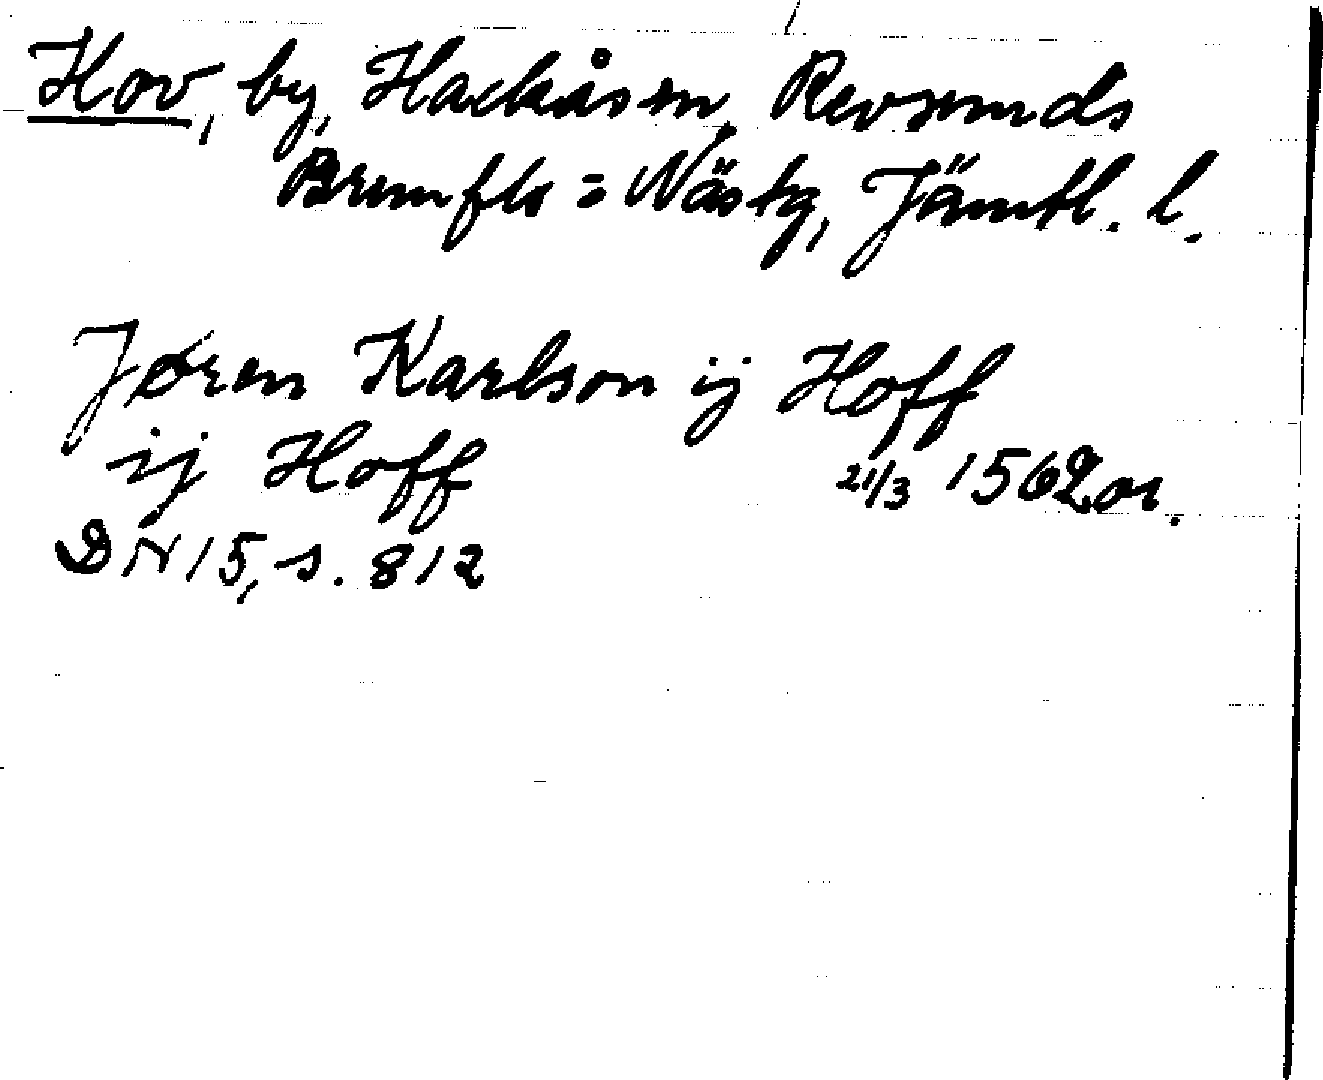 Hov, by, Hackås sn, Revsunds
Brunflo = Näs tg, Jämtl. l.
Jøren Karlson ij Hoff
ij Hoff 21/3 1562 or.
DN 15, s. 812